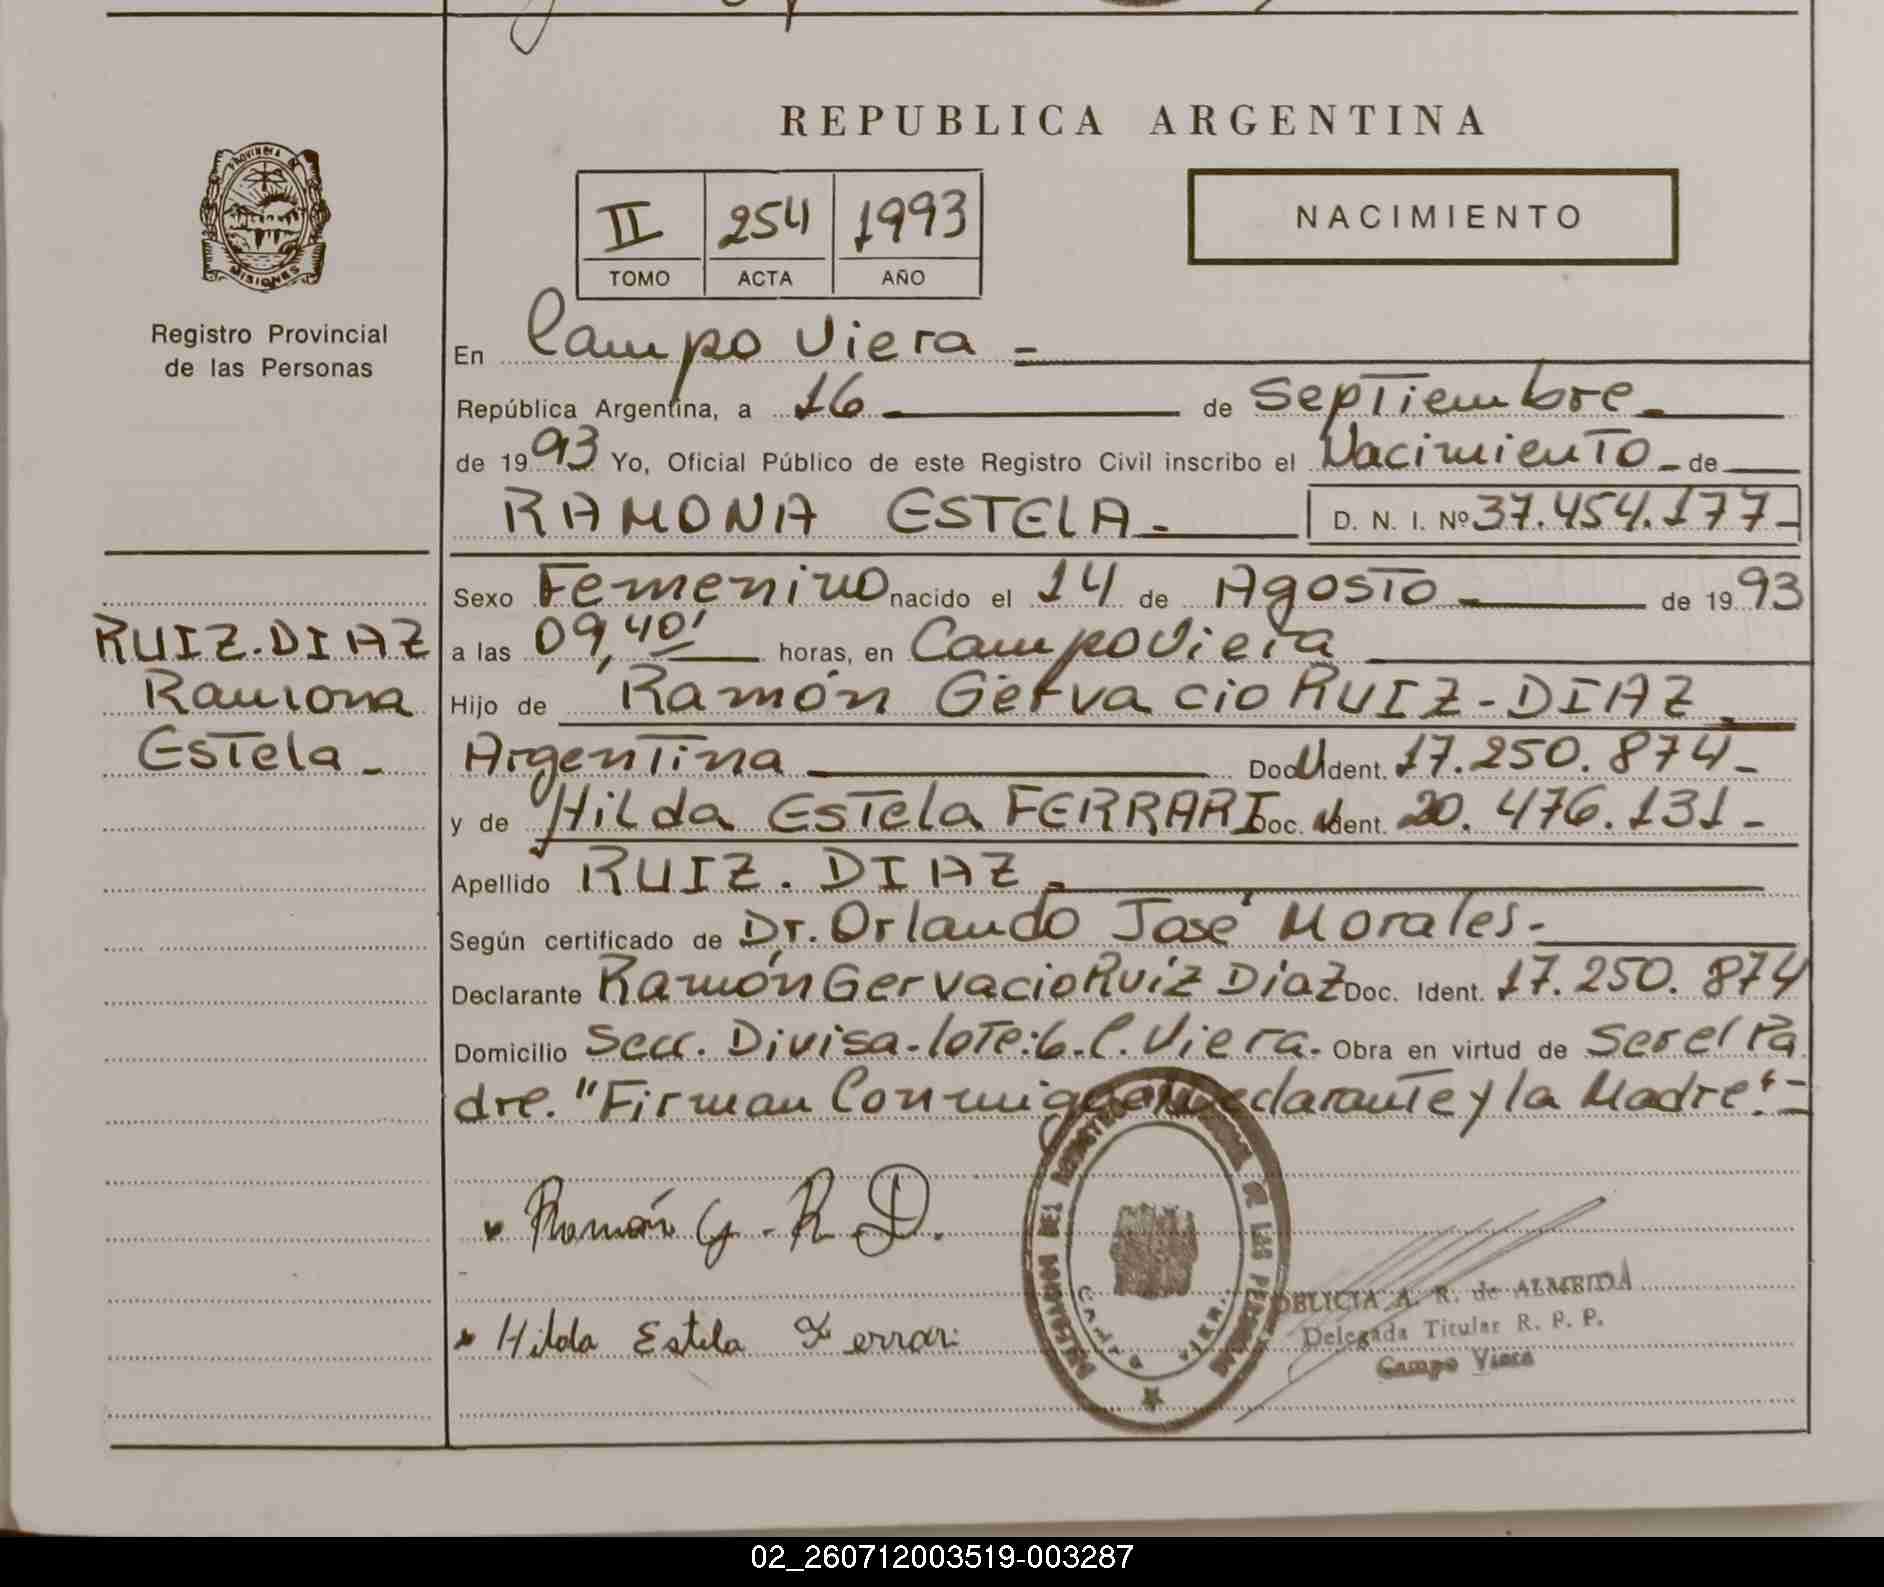 REPUBLICA ARGENTINA
PROVINCIA DE
MISIONES
Registro Provincial
de las Personas
II 254 1993
TOMO ACTA AÑO
NACIMIENTO
En Campo Viera =
República Argentina, a 16 de Septiembre
de 1993 Yo, Oficial Público de este Registro Civil inscribo el Nacimiento - de
RAMONA ESTELA - D. N. I. Nº 37.454.177-
Sexo Femenino nacido el 14 de Agosto de 1993
RUIZ.DIAZ
Ramona
Estela -
a las 09,40' horas, en Campo Viera
Hijo de Ramón Gervacio RUIZ-DIAZ
Argentina Doc. Ident. 17.250.874-
y de Hilda Estela FERRARI Doc. Ident. 20.476.131-
Apellido RUIZ. DIAZ -
Según certificado de Dr. Orlando José Morales-
Declarante Ramón Gervacio Ruiz Diaz Doc. Ident. 17.250.874
Domicilio Secc. Divisa-lote:6-C.Viera- Obra en virtud de Ser el Pa
dre. "Firman Conmigo el Declarante y la Madre"-
Ramón G. R. D.
Hilda Estela Ferrari
DEL LAS
DELICIA A. R. de ALMEIDA
Delegada Titular R. P. P.
Campo Viera
02_260712003519-003287